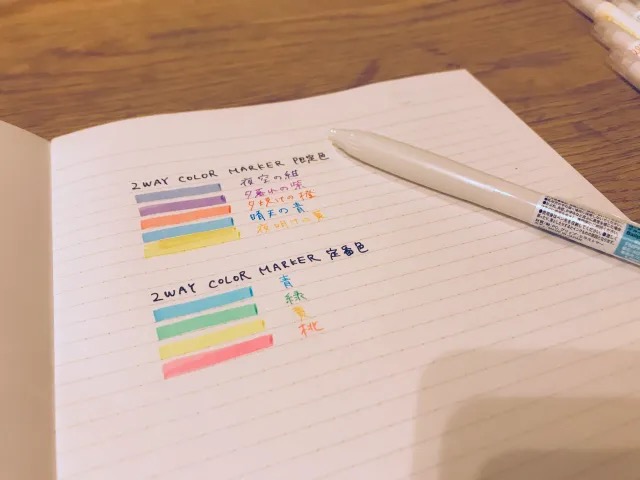 2WAY COLOR MARKER 限定色
夜空の紺
夕暮れの紫
夕焼けの橙
晴天の青
夜明けの黄
2WAY COLOR MARKER 定番色
青
緑
黄
桃